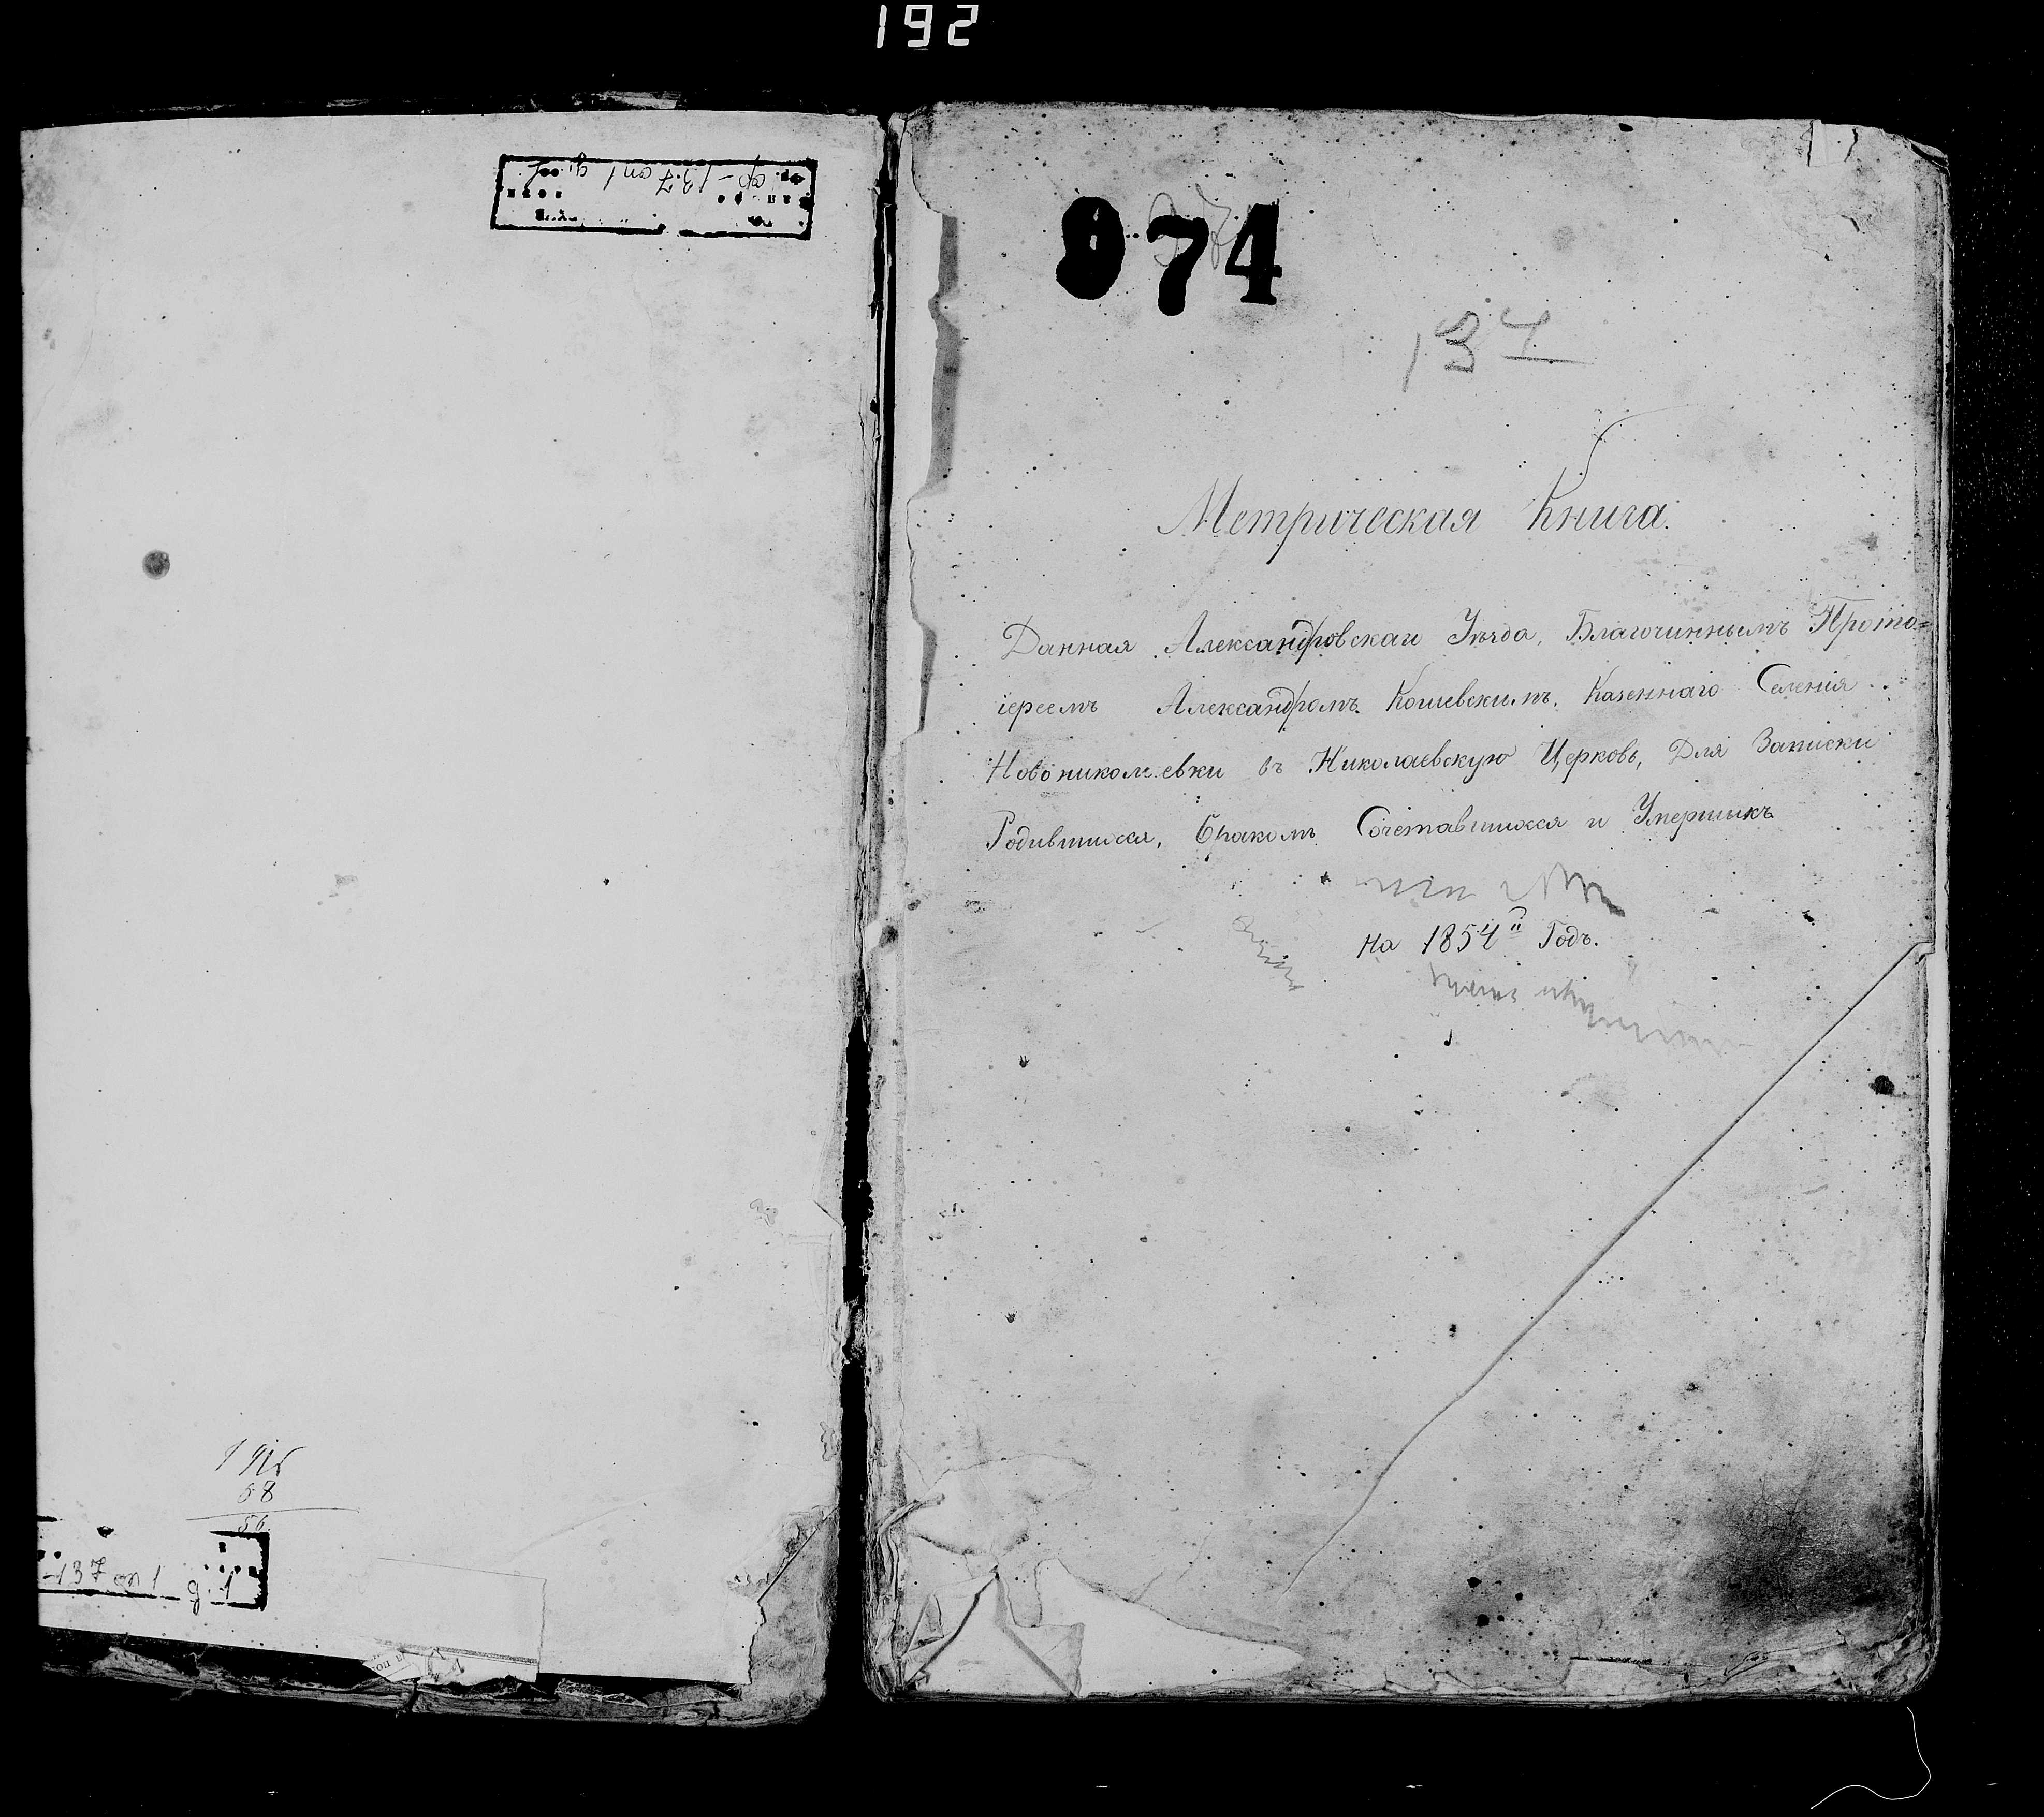 192
ф-137 оп1 д.1
58
56
-137 оп1 д.1
974
134
Метрическая Книга.
Данная Александровскаго Уѣзда, Благочиннымъ Прото=
іереемъ Александромъ Кошевскимъ, Казеннаго Селенія
Новониколаевки въ Николаевскую Церковь, Для Записки
Родившихся, Бракомъ Сочетавшихся и Умершихъ
На 1854й Годъ.